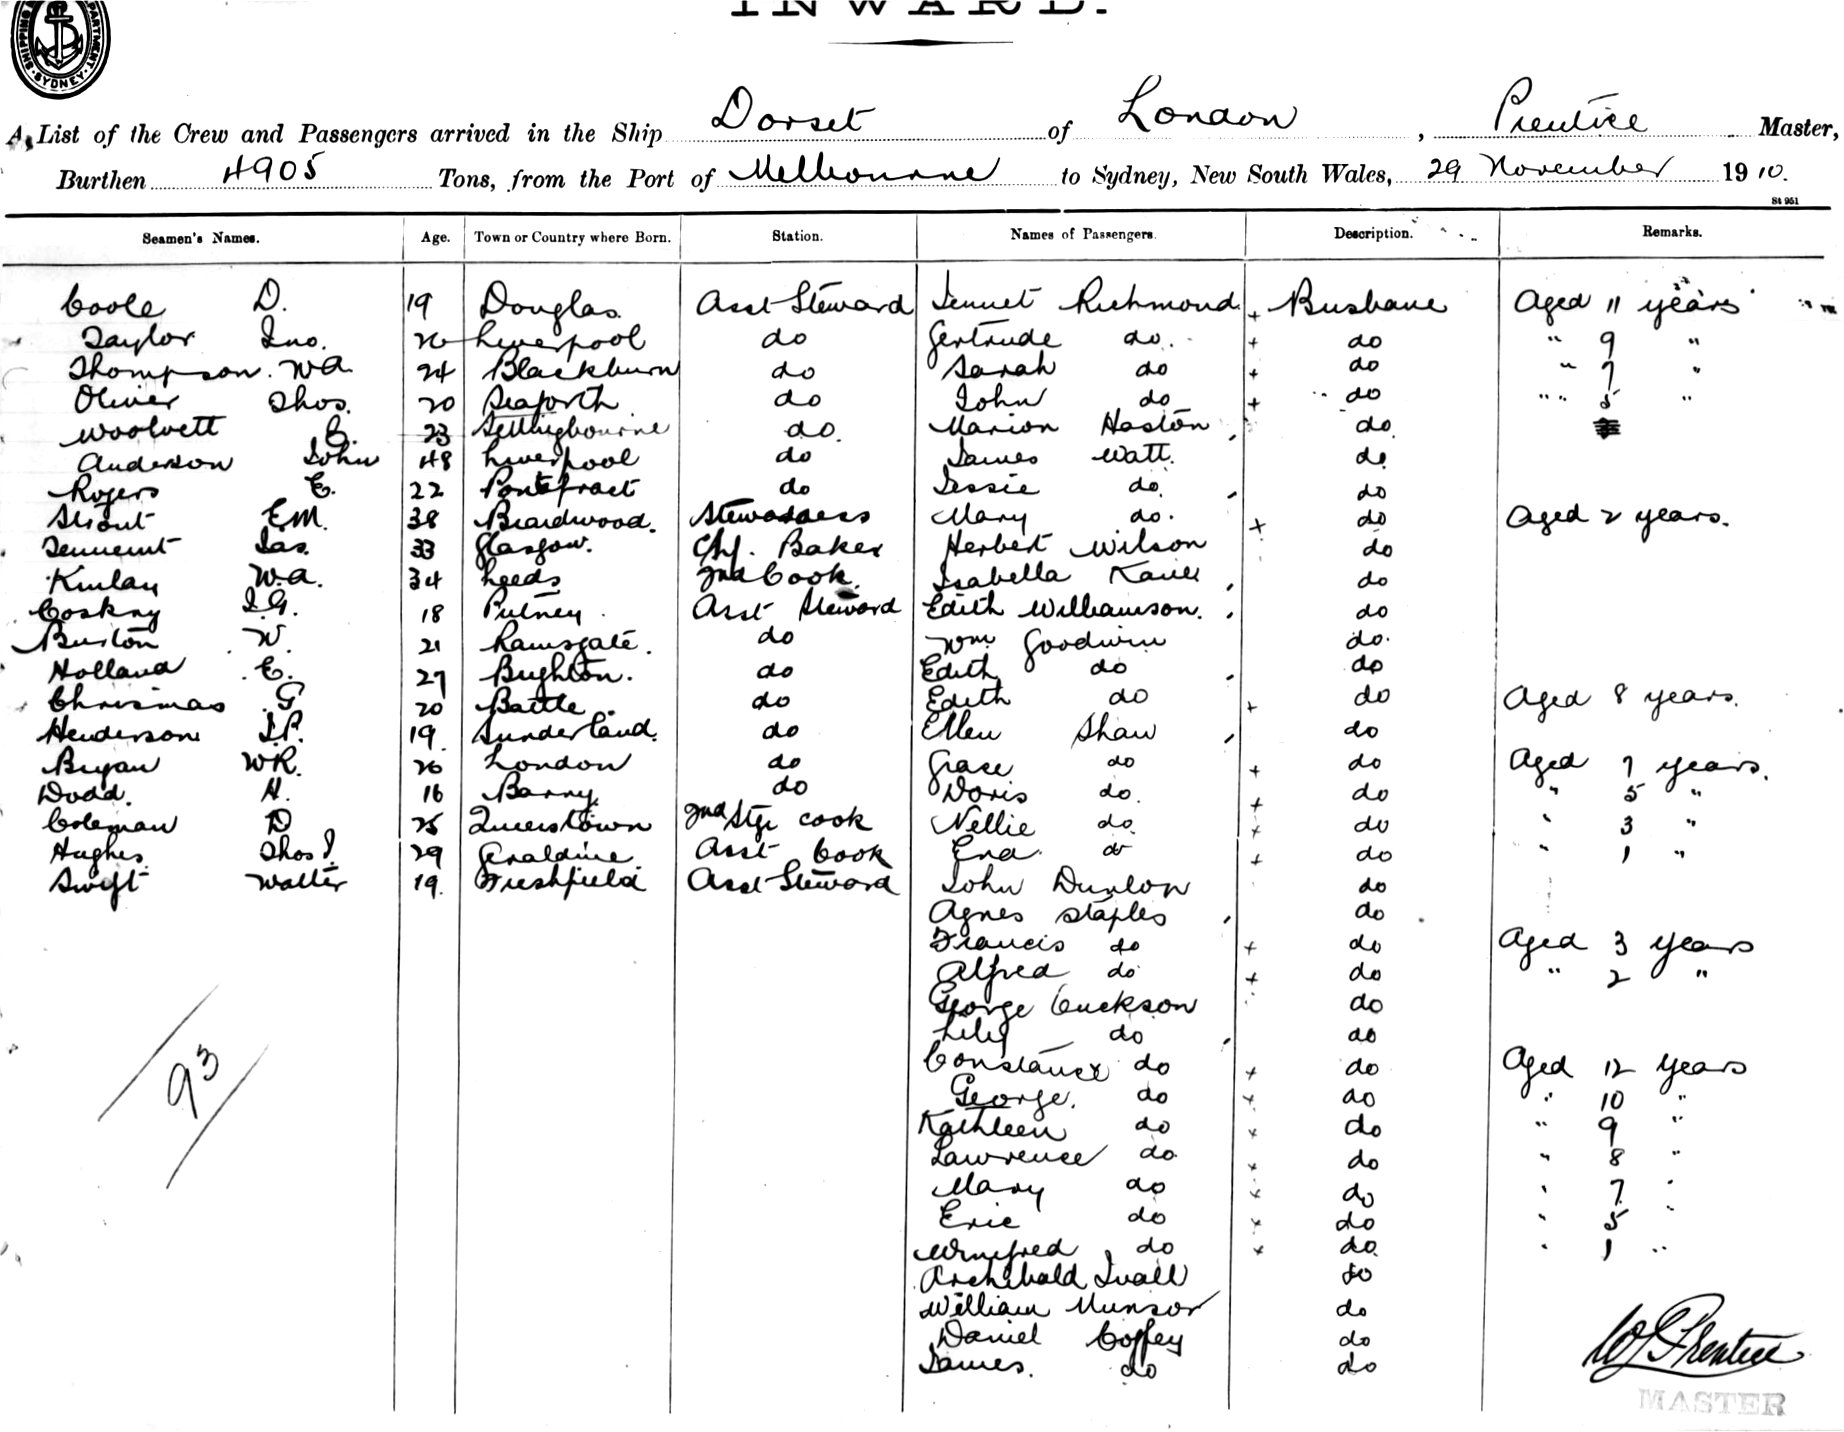 INWARD.
SHIPPING DEPARTMENT SYDNEY
A List of the Crew and Passengers arrived in the Ship Dorset of London, Prentice Master,
Burthen 4905 Tons, from the Port of Melbourne to Sydney, New South Wales, 29 November 1910.
St 951
Seamen's Names. Age. Town or Country where Born. Station. Names of Passengers. Description. Remarks.
Coole D. 19 Douglas. Asst Steward Richmond + Brisbane Aged 11 years
Taylor Jno. 20 Liverpool do Gertrude do. + do " 9 "
Thompson. W.A. 24 Blackburn do Sarah do + do " 7 "
Oliver Thos. 20 Seaforth do John do + do " 5 "
Woolvett 23 Sittingbourne do. Marion Haston do
Anderson John 48 Liverpool do James Watt. do
Rogers E. 22 Pontefract do Jessie do. do
E.M. 38 Stewardess Mary do. + do Aged 2 years.
Tennent Jas. 33 Glasgow. Chf. Baker Herbert Wilson do
W.A. 34 Leeds 2nd Cook. Isabella do
J.G. 18 Putney. Asst Steward Edith Williamson. do
Burton W. 21 Ramsgate. do Wm Goodwin do.
Holland E. 27 Brighton. do Edith do do
Chrismas G 20 Battle. do Edith do + do Aged 8 years.
Henderson J.P. 19. Sunderland. do Ellen Shaw do
Bryan W.R. 20 London do Grace do + do Aged 7 years.
Dodd. H. 16 Barry. do Doris do. + do " 5 "
Coleman D 25 Queenstown 2nd Stge cook Nellie do + do " 3 "
Hughes. Thos J. 29 Geraldine. Asst Cook Ena do + do " 1 "
Swift Walter 19. Freshfield Asst Steward John Dunlon do
Agnes Staples do
Francis do + do Aged 3 years
Alfred do + do " 2 "
George Cuckson do
Lily do do
Constance do + do Aged 12 years
George. do + do " 10 "
Kathleen do + do " 9 "
Lawrence do + do " 8 "
Mary do + do " 7 "
Eric do + do " 5 "
Winifred do + do " 1 "
Archibald do
William Munsor do
Daniel Coffey do
James. do do
93
W J Prentice
MASTER